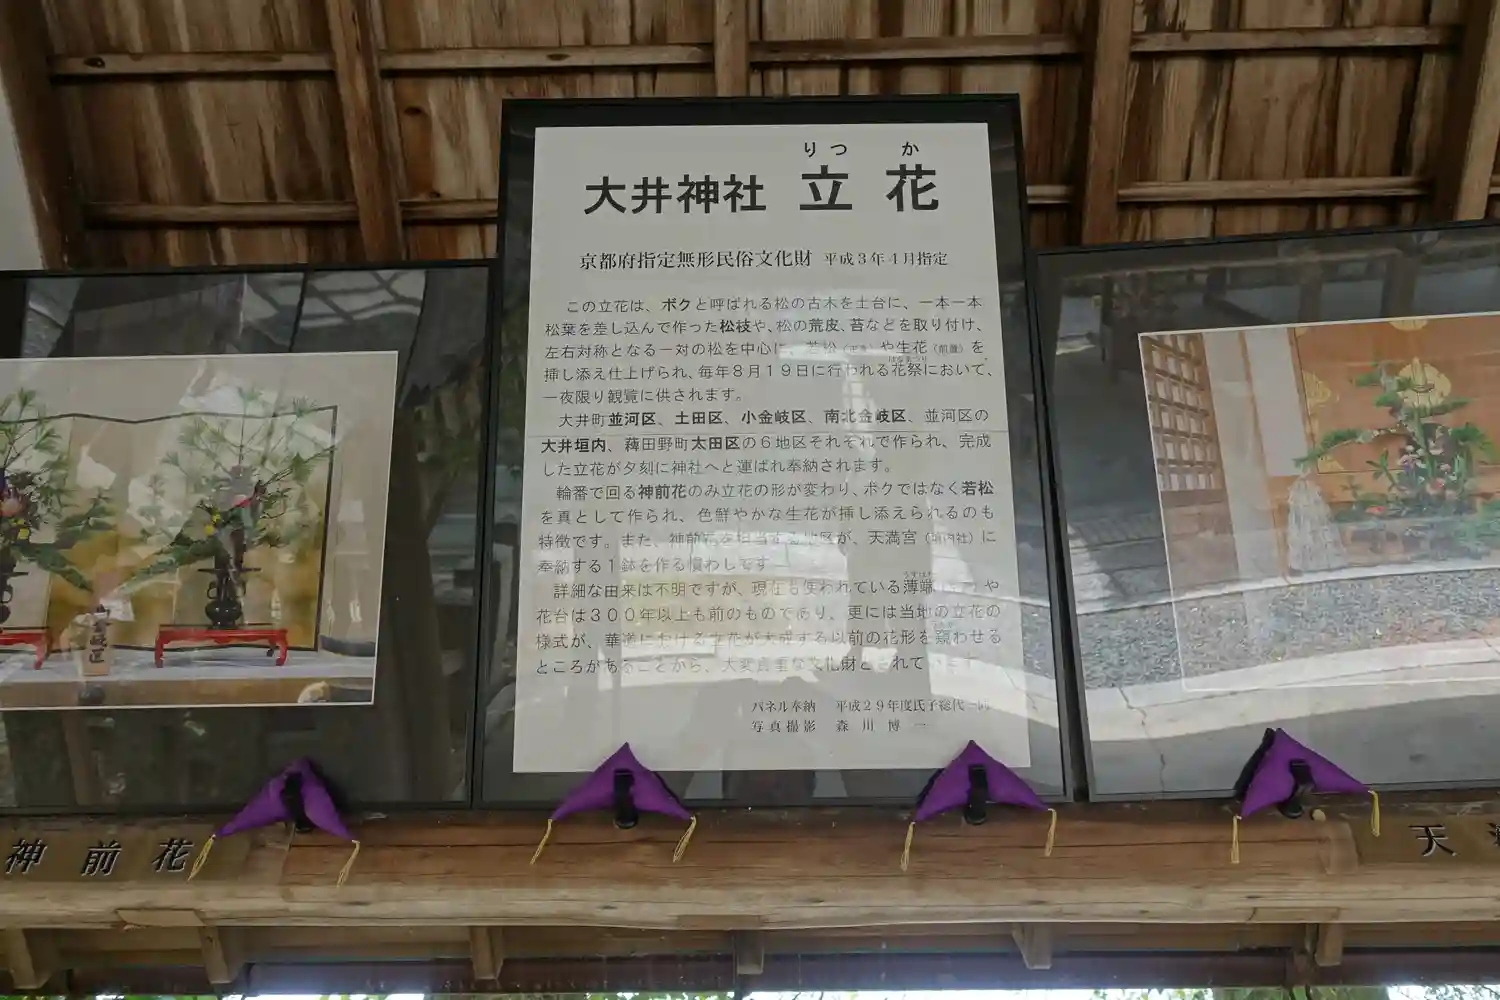 りつ か
大井神社 立花
京都府指定無形民俗文化財 平成3年4月指定
この立花は、ボクと呼ばれる松の古木を土台に、一本一本
松葉を差し込んで作った松枝や、松の荒皮、苔などを取り付け、
左右対称となる一対の松を中心に、若松や生花(前置)を
挿し添え仕上げられ、毎年8月19日に行われる花祭において、
一夜限り観覧に供されます。
大井町並河区、土田区、小金岐区、南北金岐区、並河区の
大井垣内、薭田野町太田区の6地区それぞれで作られ、完成
した立花が夕刻に神社へと運ばれ奉納されます。
輪番で回る神前花のみ立花の形が変わり、ボクではなく若松
を真として作られ、色鮮やかな生花が挿し添えられるのも
特徴です。また、神前花を担当する地区が、天満宮(境内社)に
奉納する1鉢を作る慣わしです
詳細な由来は不明ですが、現在も使われている薄端や
花台は300年以上も前のものであり、更には当地の立花の
様式が、華道における立花が大成する以前の花形を窺わせる
ところがあることから、大変貴重な文化財とされています
パネル奉納 平成29年度氏子総代一同
写真撮影 森川博一
神前花
天